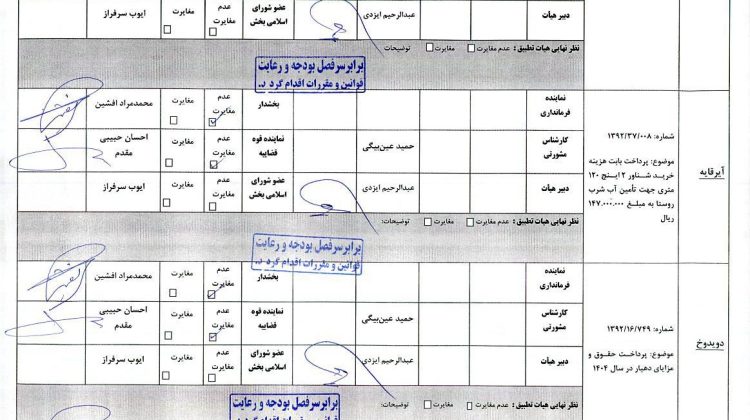 دبیر هیأت
عبدالرحیم ایزدی
عضو شورای اسلامی بخش
عدم مغایرت
مغایرت
ایوب سرفراز
نظر نهایی هیات تطبیق : عدم مغایرت مغایرت توضیحات:
برابر سرفصل بودجه و رعایت
قوانین و مقررات اقدام گردد.
آیرقایه
شماره: ۱۳۹۲/۳۷/۰۰۸
موضوع: پرداخت بابت هزینه
خرید شناور ۲ اینچ ۱۲۰
متری جهت تأمین آب شرب
روستا به مبلغ ۱۴۷.۰۰۰.۰۰۰
ریال
نماینده فرمانداری
بخشدار
عدم مغایرت
مغایرت
محمدمراد افشین
کارشناس مشورتی
حمید عین‌بیگی
نماینده قوه قضاییه
عدم مغایرت
مغایرت
احسان حبیبی مقدم
دبیر هیأت
عبدالرحیم ایزدی
عضو شورای اسلامی بخش
عدم مغایرت
مغایرت
ایوب سرفراز
نظر نهایی هیات تطبیق : عدم مغایرت مغایرت توضیحات:
برابر سرفصل بودجه و رعایت
قوانین و مقررات اقدام گردد.
دویدوخ
شماره: ۱۳۹۲/۱۶/۷۴۹
موضوع: پرداخت حقوق و
مزایای دهیار در سال ۱۴۰۴
نماینده فرمانداری
بخشدار
عدم مغایرت
مغایرت
محمدمراد افشین
کارشناس مشورتی
حمید عین‌بیگی
نماینده قوه قضاییه
عدم مغایرت
مغایرت
احسان حبیبی مقدم
دبیر هیأت
عبدالرحیم ایزدی
عضو شورای اسلامی بخش
عدم مغایرت
مغایرت
ایوب سرفراز
نظر نهایی هیات تطبیق : عدم مغایرت مغایرت توضیحات:
برابر سرفصل بودجه و رعایت
قوانین و مقررات اقدام گردد.